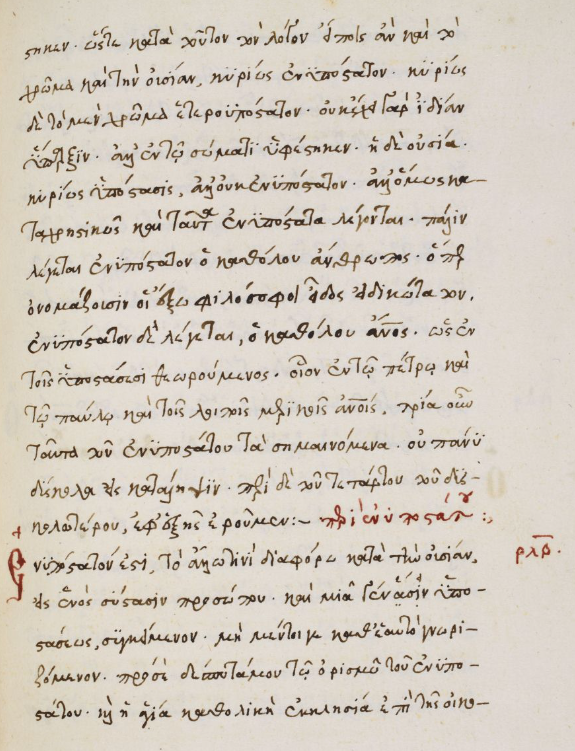 στηκεν· ὥστε κατὰ τοῦτον τὸν λόγον εἴποις ἂν καὶ τὸ
χρῶμα καὶ τὴν οὐσίαν, κυρίως ἐνϋπόστατον· κυρίως
δὲ τὸ μὲν χρῶμα ἑτεροϋπόστατον· οὐκ ἔχει γὰρ ἰδίαν
ὕπαρξιν· ἀλλ' ἐν τῷ σώματι ὑφέστηκεν· ἡ δὲ οὐσία·
κυρίως ὑπόστασις, ἀλλ' οὐκ ἐνϋπόστατον· ἀλλ' ὅμως κα-
ταχρηστικῶς καὶ ταῦτα ἐνϋπόστατα λέγονται· πάλιν
λέγεται ἐνϋπόστατον ὁ καθόλου ἄνθρωπος· ὅπερ
ὀνομάζουσιν οἱ ἔξω φιλόσοφοι εἶδος εἰδικώτατον,
ἐνϋπόστατον δὲ λέγεται, ὁ καθόλου ἄνος· ὡς ἐν
τοῖς ὑποστάσεσι θεωρούμενος. οἷον ἐν τῷ πέτρῳ καὶ
τῷ παύλῳ καὶ τοῖς λοιποῖς μερικοῖς ἀνοις, τρία οὖν
ταῦτα τοῦ ἐνϋποστάτου τὰ σημαινόμενα· οὐ πάνυ
δύσκολα εἰς κατάληψιν· περὶ δὲ τοῦ τετάρτου τοῦ δυσ-
κολωτέρου, ἐφεξῆς ἐροῦμεν:– περὶ ἐνυποστάτου:,
Ἐνϋπόστατον ἐστι, τὸ ἄλλῳ τινὶ διαφόρῳ κατὰ τὴν οὐσίαν, ρλβ.
εἰς ἑνὸς σύστασιν προσώπου· καὶ μιᾶς γένεσιν ὑπο-
στάσεως, συγκείμενον· μὴ μέντοιγε καθ' ἑαυτὸ γνωρι-
ζόμενον· μου τῷ ὁρισμῷ τοῦ ἐνϋπο-
στάτου· ἡ ἁγία καθολικὴ ἐκκλησία ἐπὶ τῆς οἰκο-